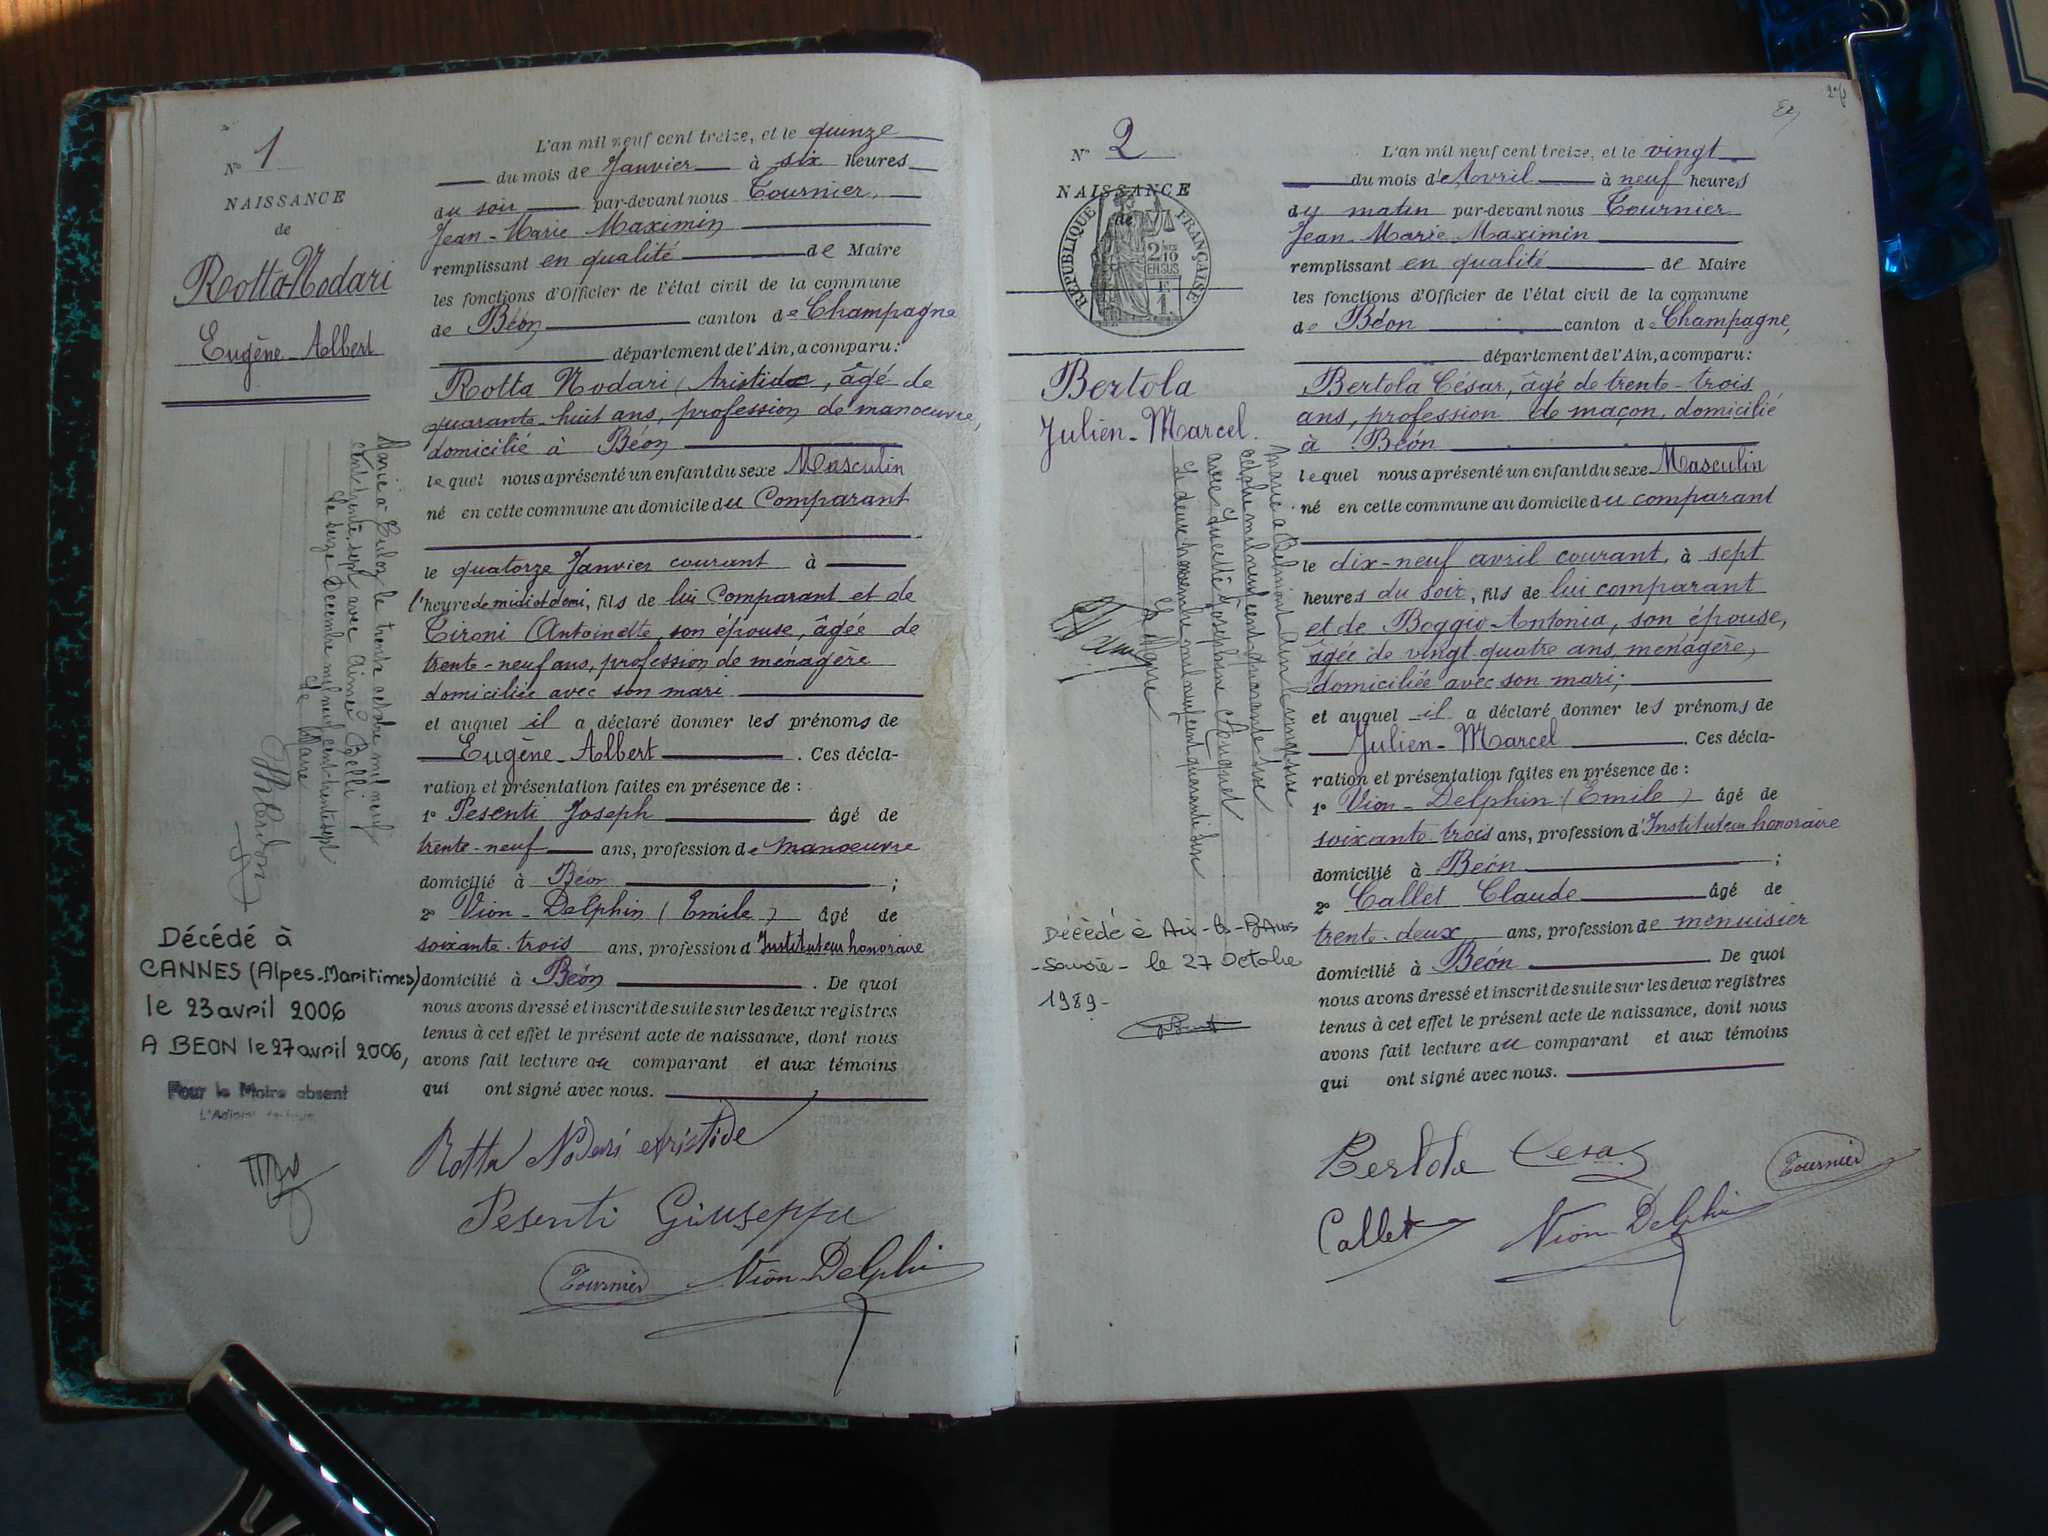 N° 1
NAISSANCE
de
Rotta-Nodari
Eugène-Albert
Marié à Culoz le trente octobre mil neuf
cent trente sept avec Aimée Belli
Le seize Décembre mil neuf cent trente sept
Le Maire
Décédé à
CANNES (Alpes-Maritimes)
le 23 avril 2006
A BEON le 27 avril 2006,
Pour le Maire absent
L'an mil neuf cent treize, et le quinze
du mois de Janvier à six heures
du soir par-devant nous Tournier,
Jean-Marie Maximin
remplissant en qualité de Maire
les fonctions d'Officier de l'état civil de la commune
de Béon canton de Champagne
département de l'Ain, a comparu :
Rotta Nodari Aristide, âgé de
quarante-huit ans, profession de manoeuvre,
domicilié à Béon
lequel nous a présenté un enfant du sexe Masculin
né en cette commune au domicile du Comparant
le quatorze Janvier courant à
l'heure de midi et demi, fils de lui Comparant et de
Tironi Antoinette, son épouse, âgée de
trente-neuf ans, profession de ménagère
domiciliée avec son mari
et auquel il a déclaré donner les prénoms de
Eugène-Albert. Ces décla-
ration et présentation faites en présence de :
1° Pesenti Joseph âgé de
trente-neuf ans, profession de manoeuvre
domicilié à Béon ;
2° Vion-Delphin (Emile) âgé de
soixante-trois ans, profession d'Instituteur honoraire
domicilié à Béon. De quoi
nous avons dressé et inscrit de suite sur les deux registres
tenus à cet effet le présent acte de naissance, dont nous
avons fait lecture au comparant et aux témoins
qui ont signé avec nous.
Rotta Nodari Aristide
Pesenti Giuseppe
Tournier Vion-Delphin
N° 2
NAISSANCE
de
RÉPUBLIQUE FRANÇAISE
2/10
EN SUS
F
1.
Bertola
Julien-Marcel.
Marié à Belmont Ain
octobre mil neuf cent quarante six
avec Lucette Joséphine
Le deux novembre mil neuf cent quarante six
Le Maire
Décédé à Aix-les-Bains
-Savoie- le 27 Octobre
1989-
L'an mil neuf cent treize, et le vingt
du mois d'Avril à neuf heures
du matin par-devant nous Tournier
Jean-Marie Maximin
remplissant en qualité de Maire
les fonctions d'Officier de l'état civil de la commune
de Béon canton de Champagne,
département de l'Ain, a comparu :
Bertola César, âgé de trente-trois
ans, profession de maçon, domicilié
à Béon
lequel nous a présenté un enfant du sexe Masculin
né en cette commune au domicile du comparant
le dix-neuf avril courant, à sept
heures du soir, fils de lui comparant
et de Boggio Antonia, son épouse,
âgée de vingt-quatre ans, ménagère,
domiciliée avec son mari;
et auquel il a déclaré donner les prénoms de
Julien-Marcel. Ces décla-
ration et présentation faites en présence de :
1° Vion-Delphin (Emile) âgé de
soixante trois ans, profession d'Instituteur honoraire
domicilié à Béon ;
2° Callet Claude âgé de
trente-deux ans, profession de menuisier
domicilié à Béon. De quoi
nous avons dressé et inscrit de suite sur les deux registres
tenus à cet effet le présent acte de naissance, dont nous
avons fait lecture au comparant et aux témoins
qui ont signé avec nous.
Bertola Cesar Tournier
Callet Vion-Delphin